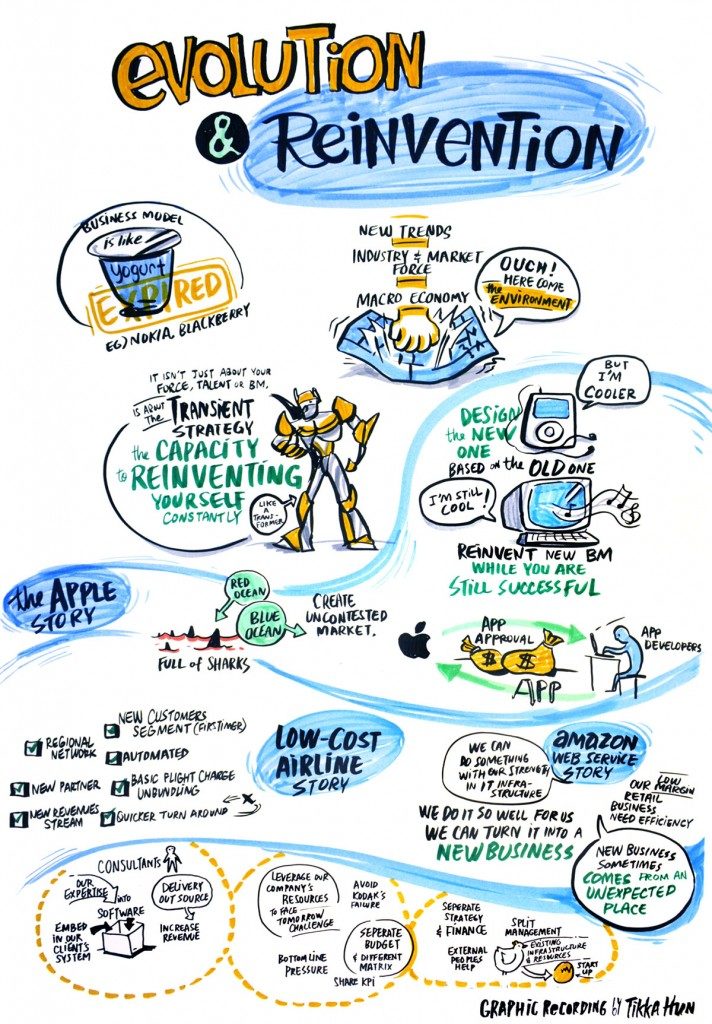 EVOLUTION
& REINVENTION
BUSINESS MODEL
is like
yogurt
EXPIRED
EG) NOKIA, BLACKBERRY
NEW TRENDS
INDUSTRY & MARKET
FORCE
MACRO ECONOMY
OUCH!
HERE COME
the
ENVIRONMENT
IT ISN'T JUST ABOUT YOUR
FORCE, TALENT OR BM.
IS ABOUT
THE TRANSIENT
STRATEGY
the CAPACITY
to REINVENTING
YOURSELF
CONSTANTLY
LIKE
A TRANS-
FORMER
BUT
I'M
COOLER
DESIGN
the NEW
ONE
BASED ON the OLD ONE
I'M STILL
COOL!
REINVENT NEW BM
WHILE YOU ARE
STILL SUCCESSFUL
the APPLE
STORY
RED
OCEAN
BLUE
OCEAN
FULL of SHARKS
CREATE
UNCONTESTED
MARKET.
APP
APPROVAL
$ $
APP
APP
DEVELOPERS
REGIONAL
NETWORK
NEW CUSTOMERS
SEGMENT (FIRSTIMER)
AUTOMATED
NEW PARTNER
BASIC FLIGHT CHARGE
UNBUNDLING
NEW REVENUES
STREAM
QUICKER TURN AROUND
LOW-COST
AIRLINE
STORY
amazon
WEB SERVICE
STORY
WE CAN
DO SOMETHING
WITH OUR STRENGTH
IN IT INFRA-
STRUCTURE
WE DO IT SO WELL FOR US
WE CAN TURN IT INTO A
NEW BUSINESS
OUR LOW MARGIN
RETAIL
BUSINESS
NEED EFFICIENCY
NEW BUSINESS
SOMETIMES
COMES FROM AN
UNEXPECTED
PLACE
CONSULTANTS
OUR
EXPERTISE
into
SOFTWARE
EMBED
IN OUR
CLIENT'S
SYSTEM
DELIVERY
OUT SOURCE
INCREASE
REVENUE
LEVERAGE OUR
COMPANY'S
RESOURCES
TO FACE
TOMORROW
CHALLENGE
AVOID
KODAK'S
FAILURE
BOTTOM LINE
PRESSURE
SEPERATE
BUDGET
& DIFFERENT
MATRIX
SHARE KPI
SEPERATE
STRATEGY
& FINANCE
EXTERNAL
PEOPLES
HELP
SPLIT
MANAGEMENT
EXISTING
INFRASTRUCTURE
& RESOURCES
START
UP
GRAPHIC RECORDING by TIKKA HUN